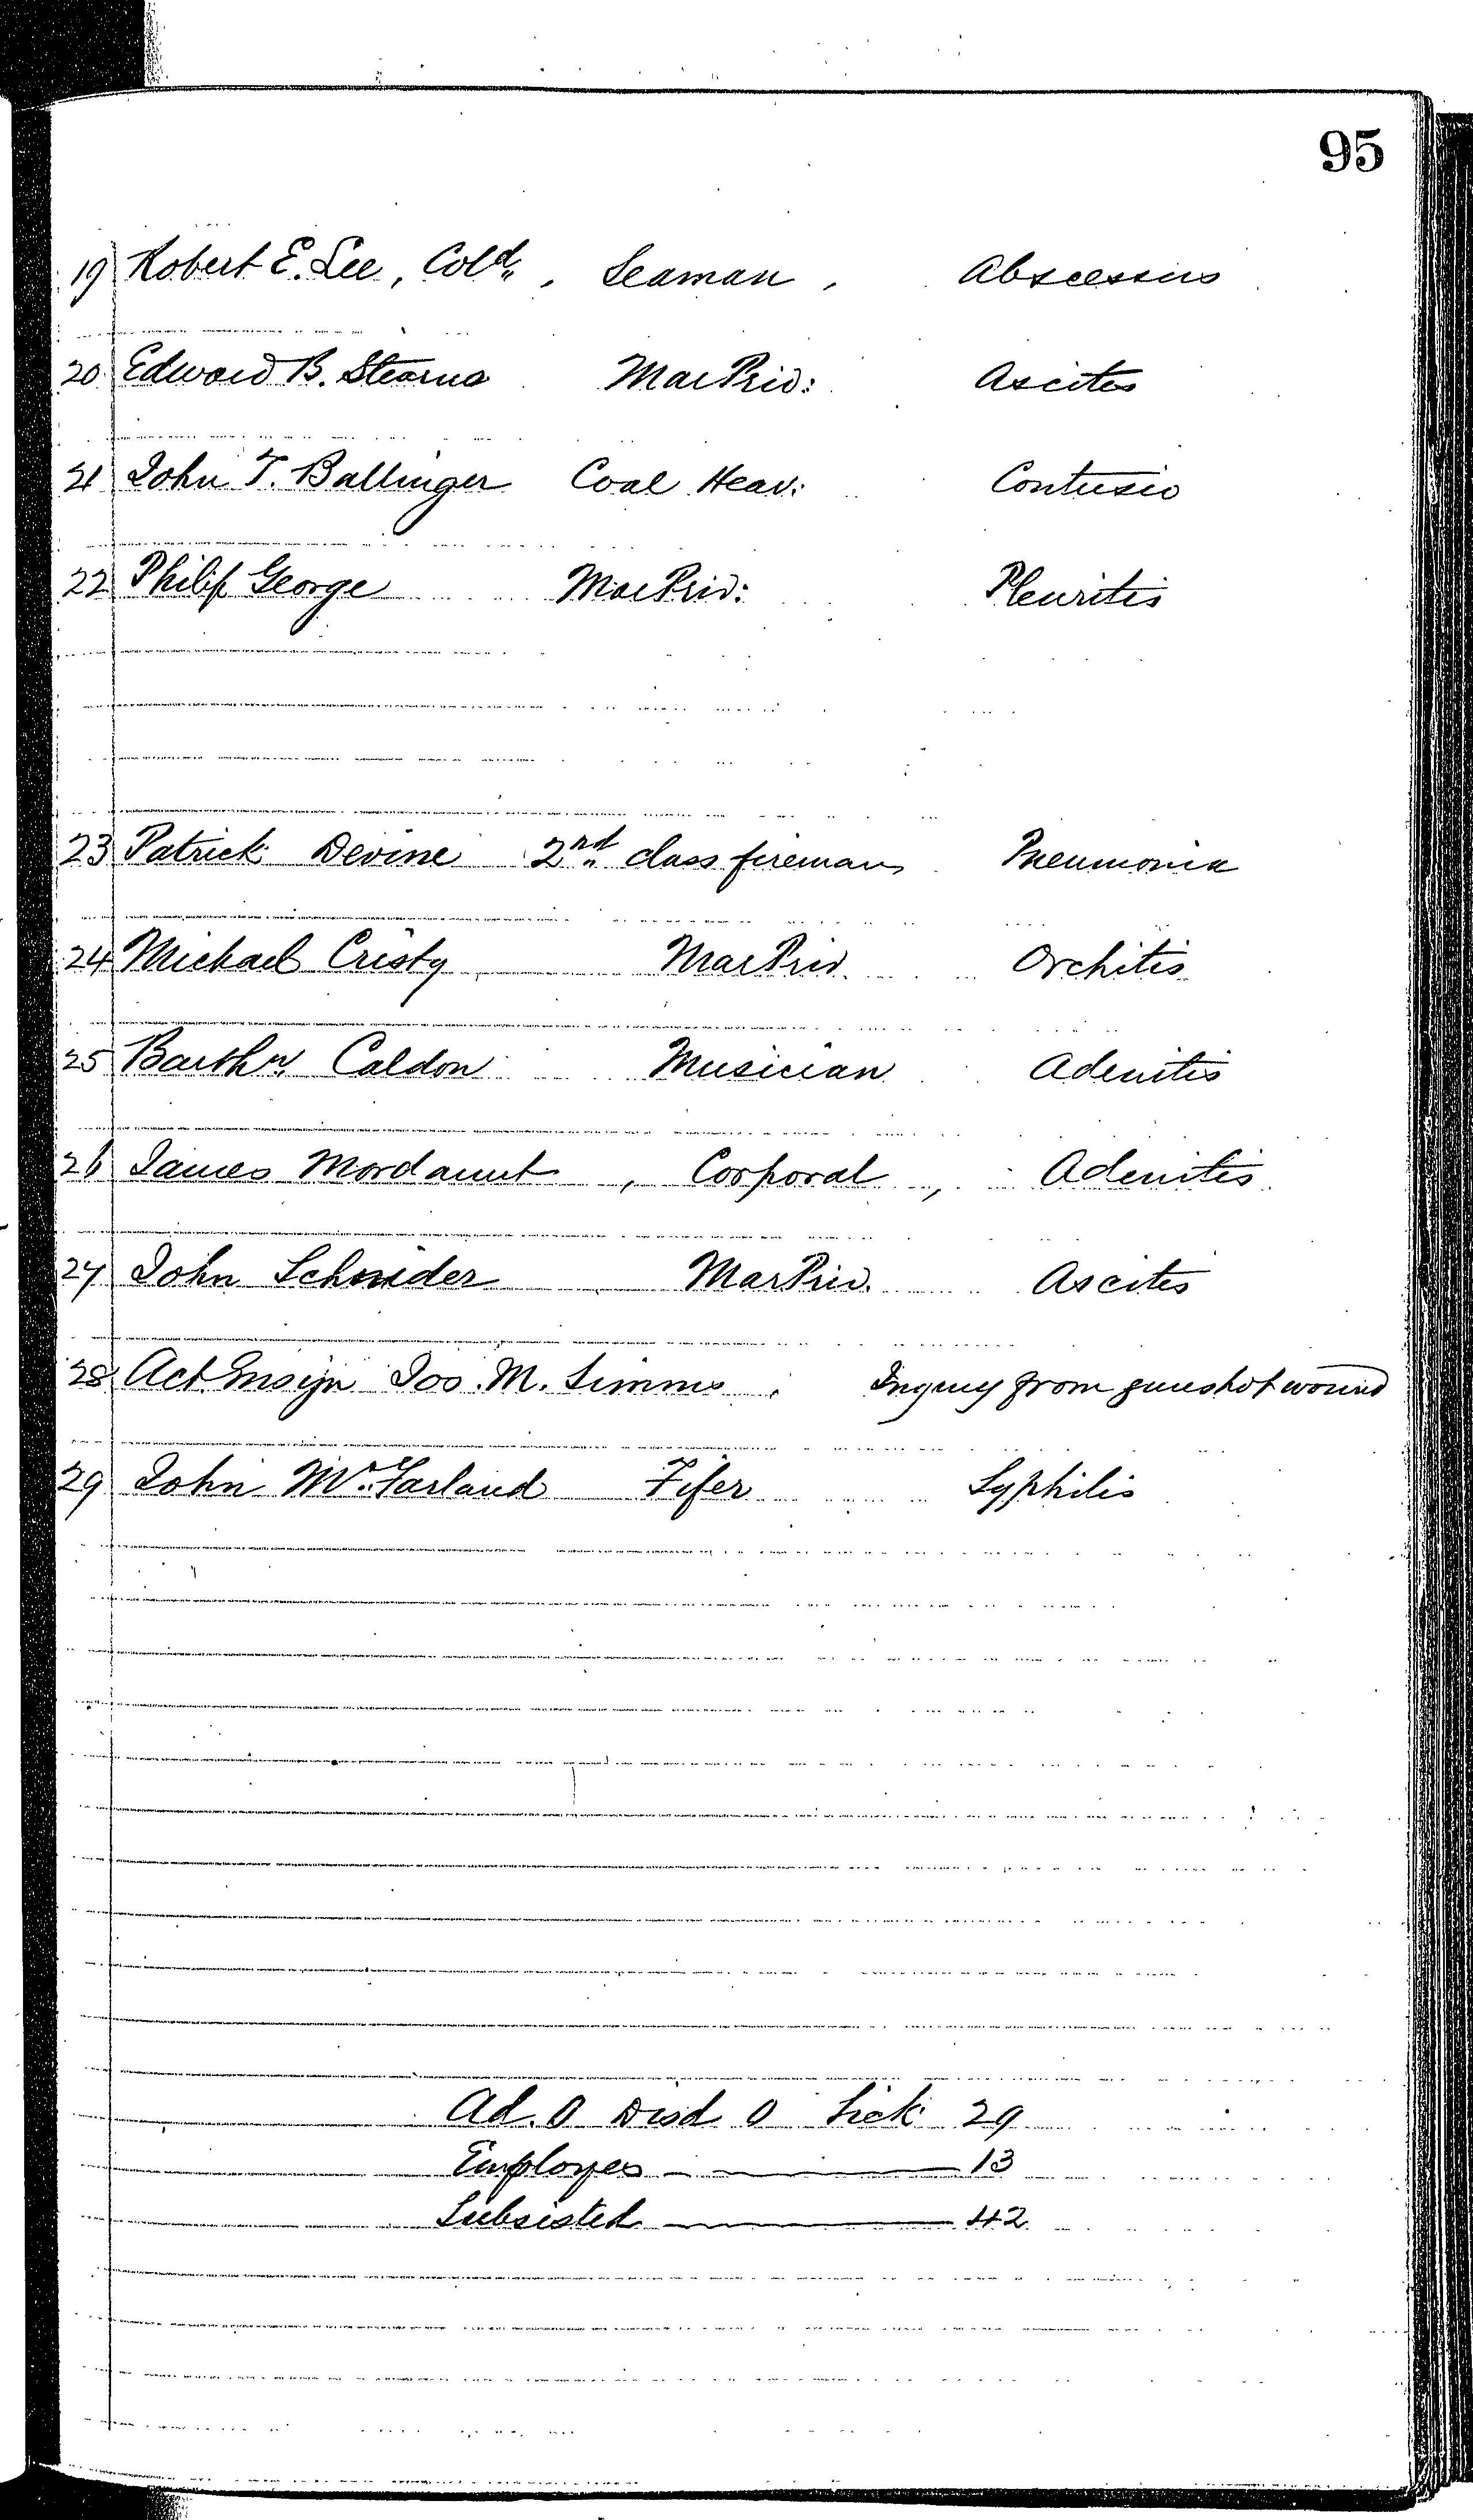 95
19 Robert E. Lee, Cold, Seaman, Abscessus
20 Edward B. Stearns MarPriv: Ascites
21 John T. Ballinger Coal Heav: Contusio
22 Philip George MarPriv: Pleuritis
23 Patrick Devine 2nd class fireman Pneumonia
24 Michael Cristy MarPriv. Orchitis
25 Barthw. Caldon Musician Adenitis
26 James Mordaunt, Corporal, Adenitis
27 John Schnider MarPriv. Ascites
28 Act. Ensign Jos. M. Simms. Injury from gunshot wound
29 John McFarland Fifer Syphilis
Ad. 0 Disd 0 Sick 29
Employes — 13
Subsisted — 42